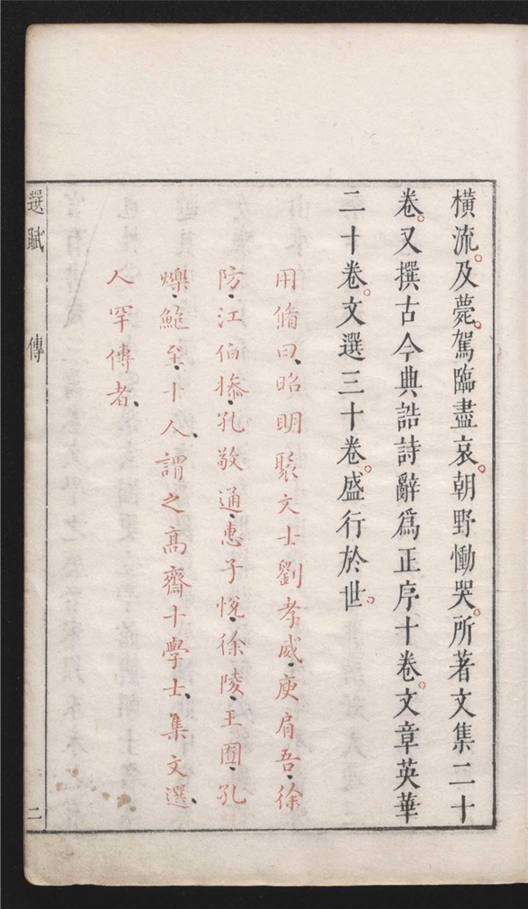 橫流。及薨。駕臨盡哀。朝野慟哭。所著文集二十
卷。又撰古今典誥詩辭爲正序十卷。文章英華
二十卷。文選三十卷。盛行於世。
用脩曰、昭明聚文士劉孝威、庾肩吾、徐
防、江伯搖、孔敬通、惠子悅、徐陵、王囿、孔
爍、鮑至、十人、謂之高齋十學士、集文選、
人罕傳者、
選賦 傳 二